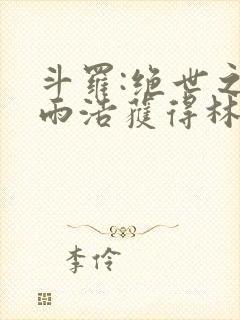 斗羅:绝世之
雨浩獲得林
李伶